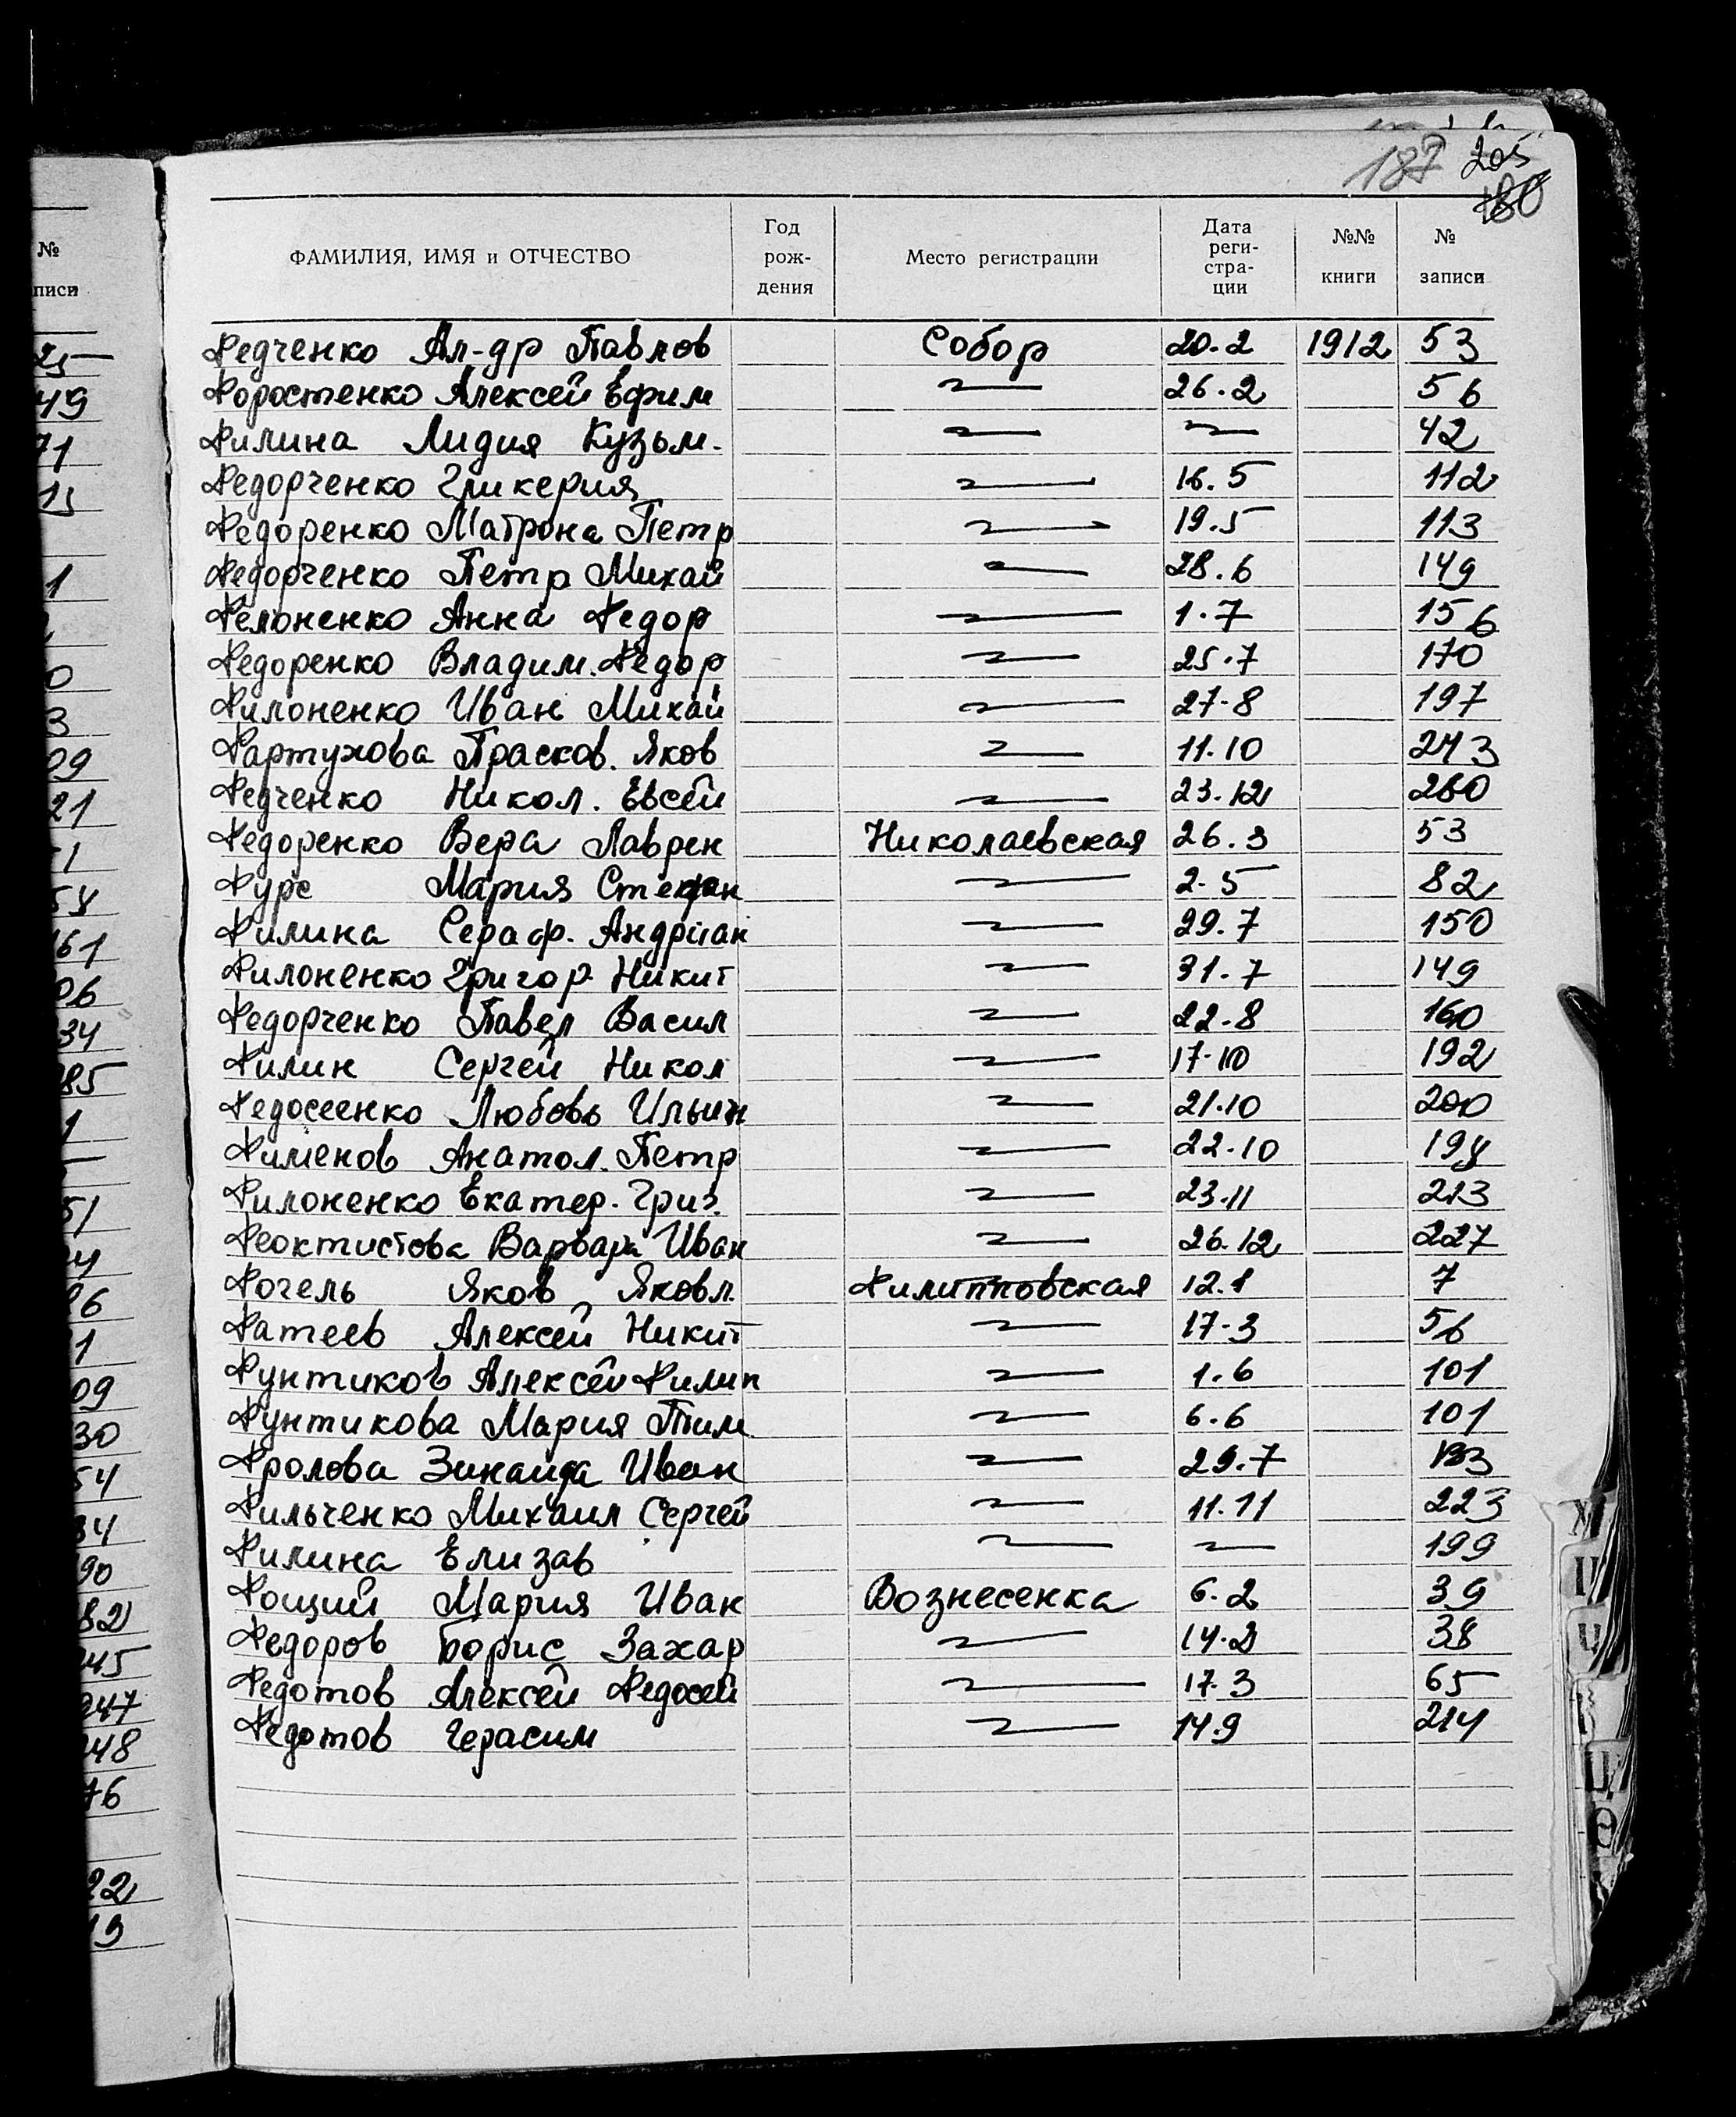 187 205
180
ФАМИЛИЯ, ИМЯ и ОТЧЕСТВО Год рождения Место регистрации Дата регистрации №№ книги № записи
№
писи
Федченко Ал-др Павлов Собор 20.2 1912 53
Форостенко Алексей Ефим 26.2 56
Филина Лидия Кузьм. 42
Федорченко Гликерия 16.5 112
Федоренко Матрона Петр 19.5 113
Федорченко Петр Михай 28.6 149
Фелоненко Анна Федор 1.7 156
Федоренко Владим. Федор 25.7 170
Филоненко Иван Михай 27-8 197
Фартухова Прасков. Яков 11.10 243
Федченко Никол. Евсей 23.12 280
Федоренко Вера Лаврен Николаевская 26.3 53
Фурс Мария Стефан 2-5 82
Филина Сераф. Андриан 29.7 150
Филоненко Григор Никит 31.7 149
Федорченко Павел Васил 22.8 160
Филин Сергей Никол 17-10 192
Федосеенко Любовь Ильин 21.10 200
Фименов Анатол. Петр 22.10 198
Филоненко Екатер. Григ. 23.11 213
Феоктистова Варвара Иван 26.12 227
Фогель Яков Яковл. Филипповская 12.1 7
Фатеев Алексей Никит 17-3 56
Фунтиков Алексей Филип 1.6 101
Фунтикова Мария Тим. 6.6 101
Фролова Зинаида Иван 29.7 133
Фильченко Михаил Сергей 11.11 223
Филина Елизав 199
Фощий Мария Иван Вознесенка 6.2 39
Федоров Борис Захар 14.2 38
Федотов Алексей Федосей 17.3 65
Федотов Герасим 14.9 214